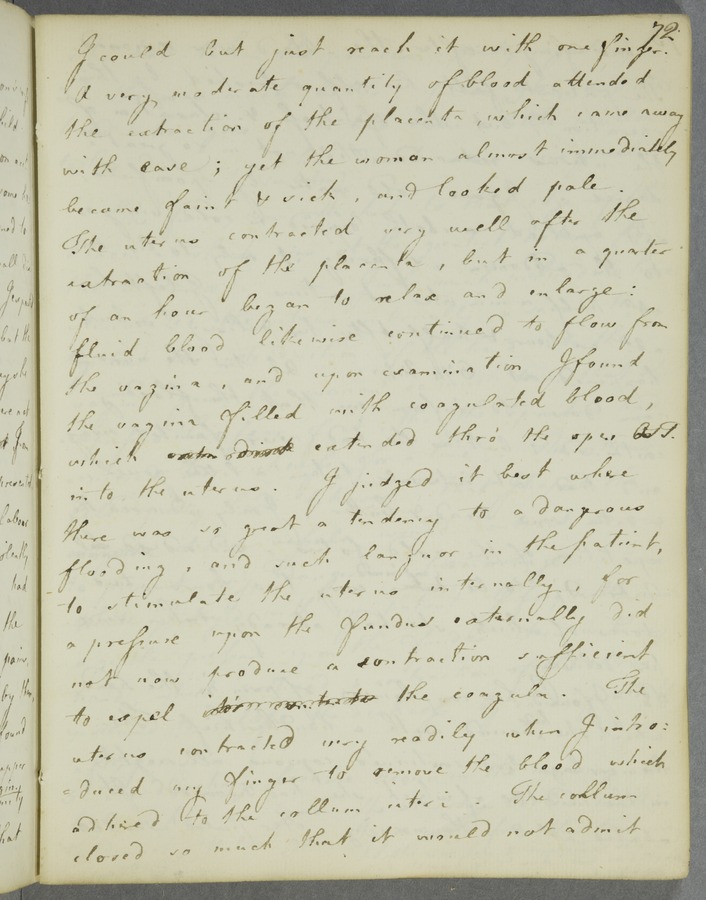 72
I could but just reach it with one finger.
A very moderate quantity of blood attended
the extraction of the placenta, which came away
with ease; yet the woman almost immediately
became faint & sick, and looked pale.
The uterus contracted very well after the
extraction of the placenta, but in a quarter
of an hour began to relax and enlarge:
fluid blood likewise continued to flow from
the vagina, and upon examination I found
the vagina filled with coagulated blood,
which extended thro' the open
into the uterus. I judged it best where
there was so great a tendency to a dangerous
flooding, and such languor in the patient,
to stimulate the uterus internally, for
a pressure upon the fundus externally did
not now produce a contraction sufficient
to expel the coagula. The
uterus contracted very readily when I intro:
=duced my finger to remove the blood which
adhered to the collum uteri. The collum
closed so much that it would not admit